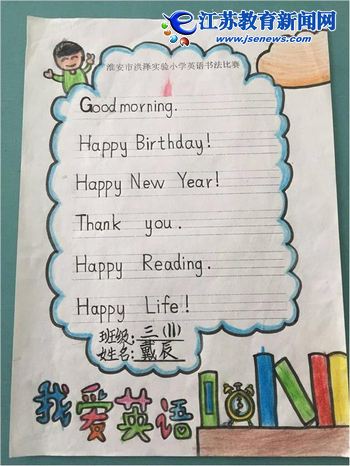 江苏教育新闻网
www.jsenews.com
淮安市洪泽实验小学英语书法比赛
Good morning.
Happy Birthday!
Happy New Year!
Thank you.
Happy Reading.
Happy Life!
班级:三(11)
姓名:戴辰
我爱英语